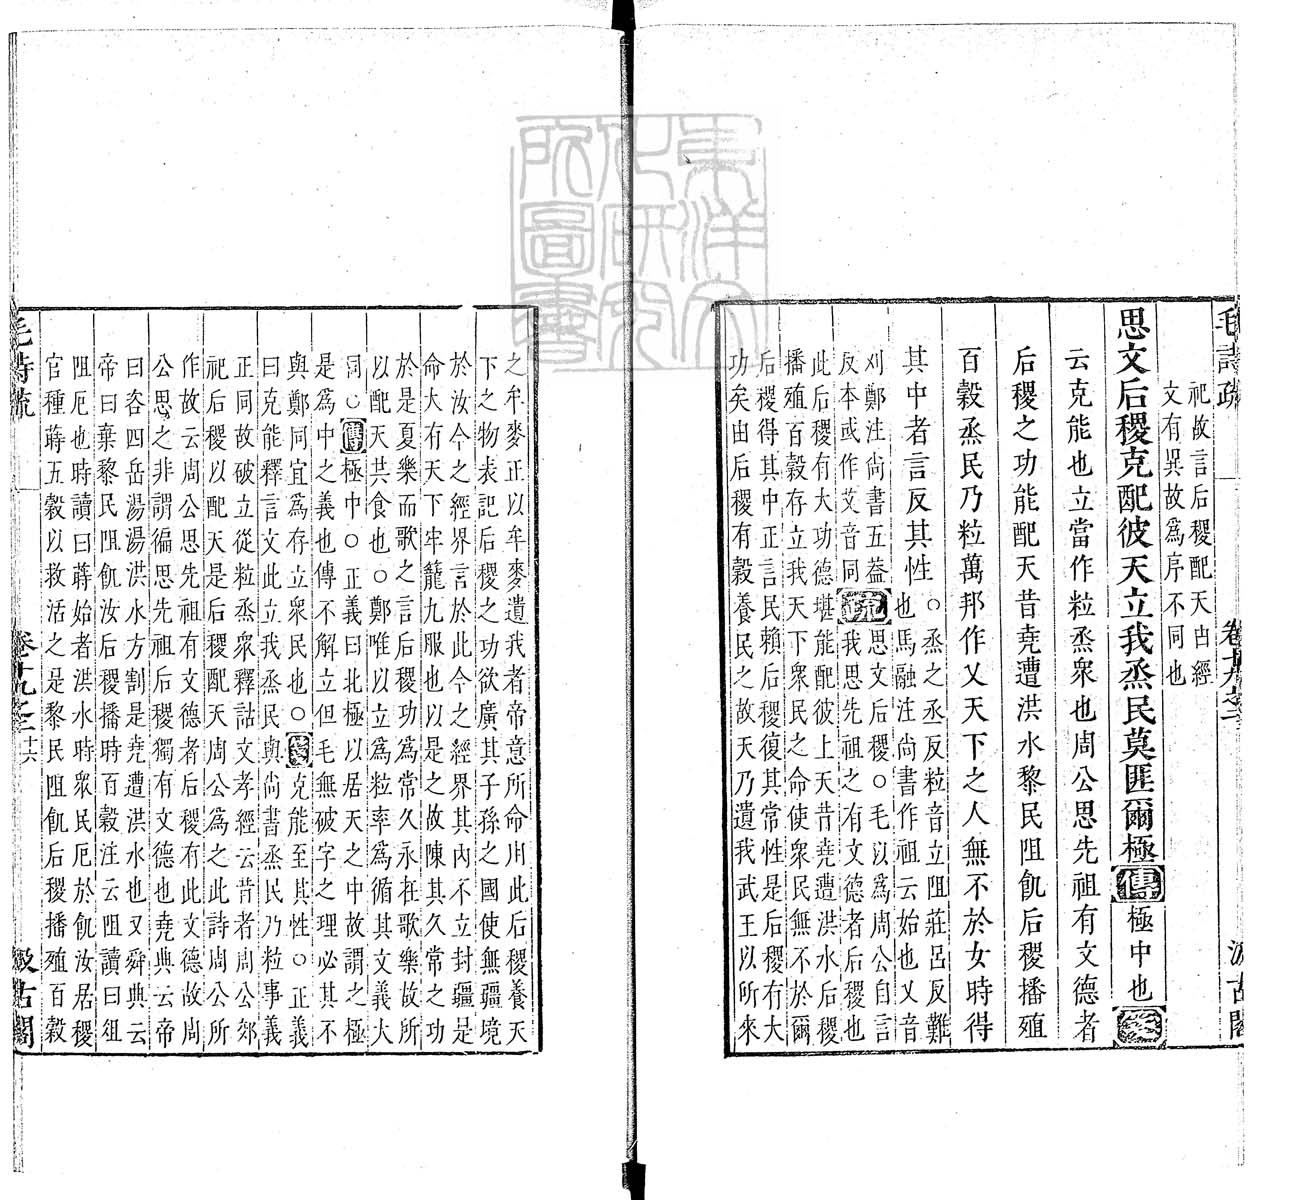 東洋文
化研究
所圖書
毛詩疏 卷十九之二 汲古閣
祀故言后稷配天由經
文有異故爲序不同也
思文后稷克配彼天立我烝民莫匪爾極傳極中也箋
云克能也立當作粒烝衆也周公思先祖有文德者
后稷之功能配天昔堯遭洪水黎民阻飢后稷播殖
百穀烝民乃粒萬邦作乂天下之人無不於女時得
其中者言反其性
○烝之丞反粒音立阻莊呂反難
也馬融注尚書作祖云始也乂音
刈鄭注尚書五葢
反本或作艾音同
疏
思文后稷○毛以爲周公自言
我思先祖之有文德者后稷也
此后稷有大功德堪能配彼上天昔堯遭洪水后稷
播殖百穀存立我天下衆民之命使衆民無不於爾
后稷得其中正言民賴后稷復其常性是后稷有大
功矣由后稷有穀養民之故天乃遺我武王以所來
之牟麥正以牟麥遺我者帝意所命用此后稷養天
下之物表記后稷之功欲廣其子孫之國使無疆境
於汝今之經界言於此今之經界其內不立封疆是
命大有天下牢籠九服也以是之故陳其久常之功
於是夏樂而歌之言后稷功爲常久永在歌樂故所
以配天共食也○鄭唯以立爲粒率爲循其文義大
同○傳極中○正義曰北極以居天之中故謂之極
是爲中之義也傳不解立但毛無破字之理必其不
與鄭同宜爲存立衆民也○箋克能至其性○正義
曰克能釋言文此立我烝民與尚書烝民乃粒事義
正同故破立從粒烝衆釋詁文孝經云昔者周公郊
祀后稷以配天是后稷配天周公爲之此詩周公所
作故云周公思先祖有文德者后稷有此文德故周
公思之非謂徧思先祖后稷獨有文德也堯典云帝
曰咨四岳湯湯洪水方割是堯遭洪水也又舜典云
帝曰棄黎民阻飢汝后稷播時百穀注云阻讀曰俎
阻厄也時讀曰蒔始者洪水時衆民厄於飢汝居稷
官種蒔五穀以救活之是黎民阻飢后稷播殖百穀
毛詩疏 卷十九之二 廿六 汲古閣